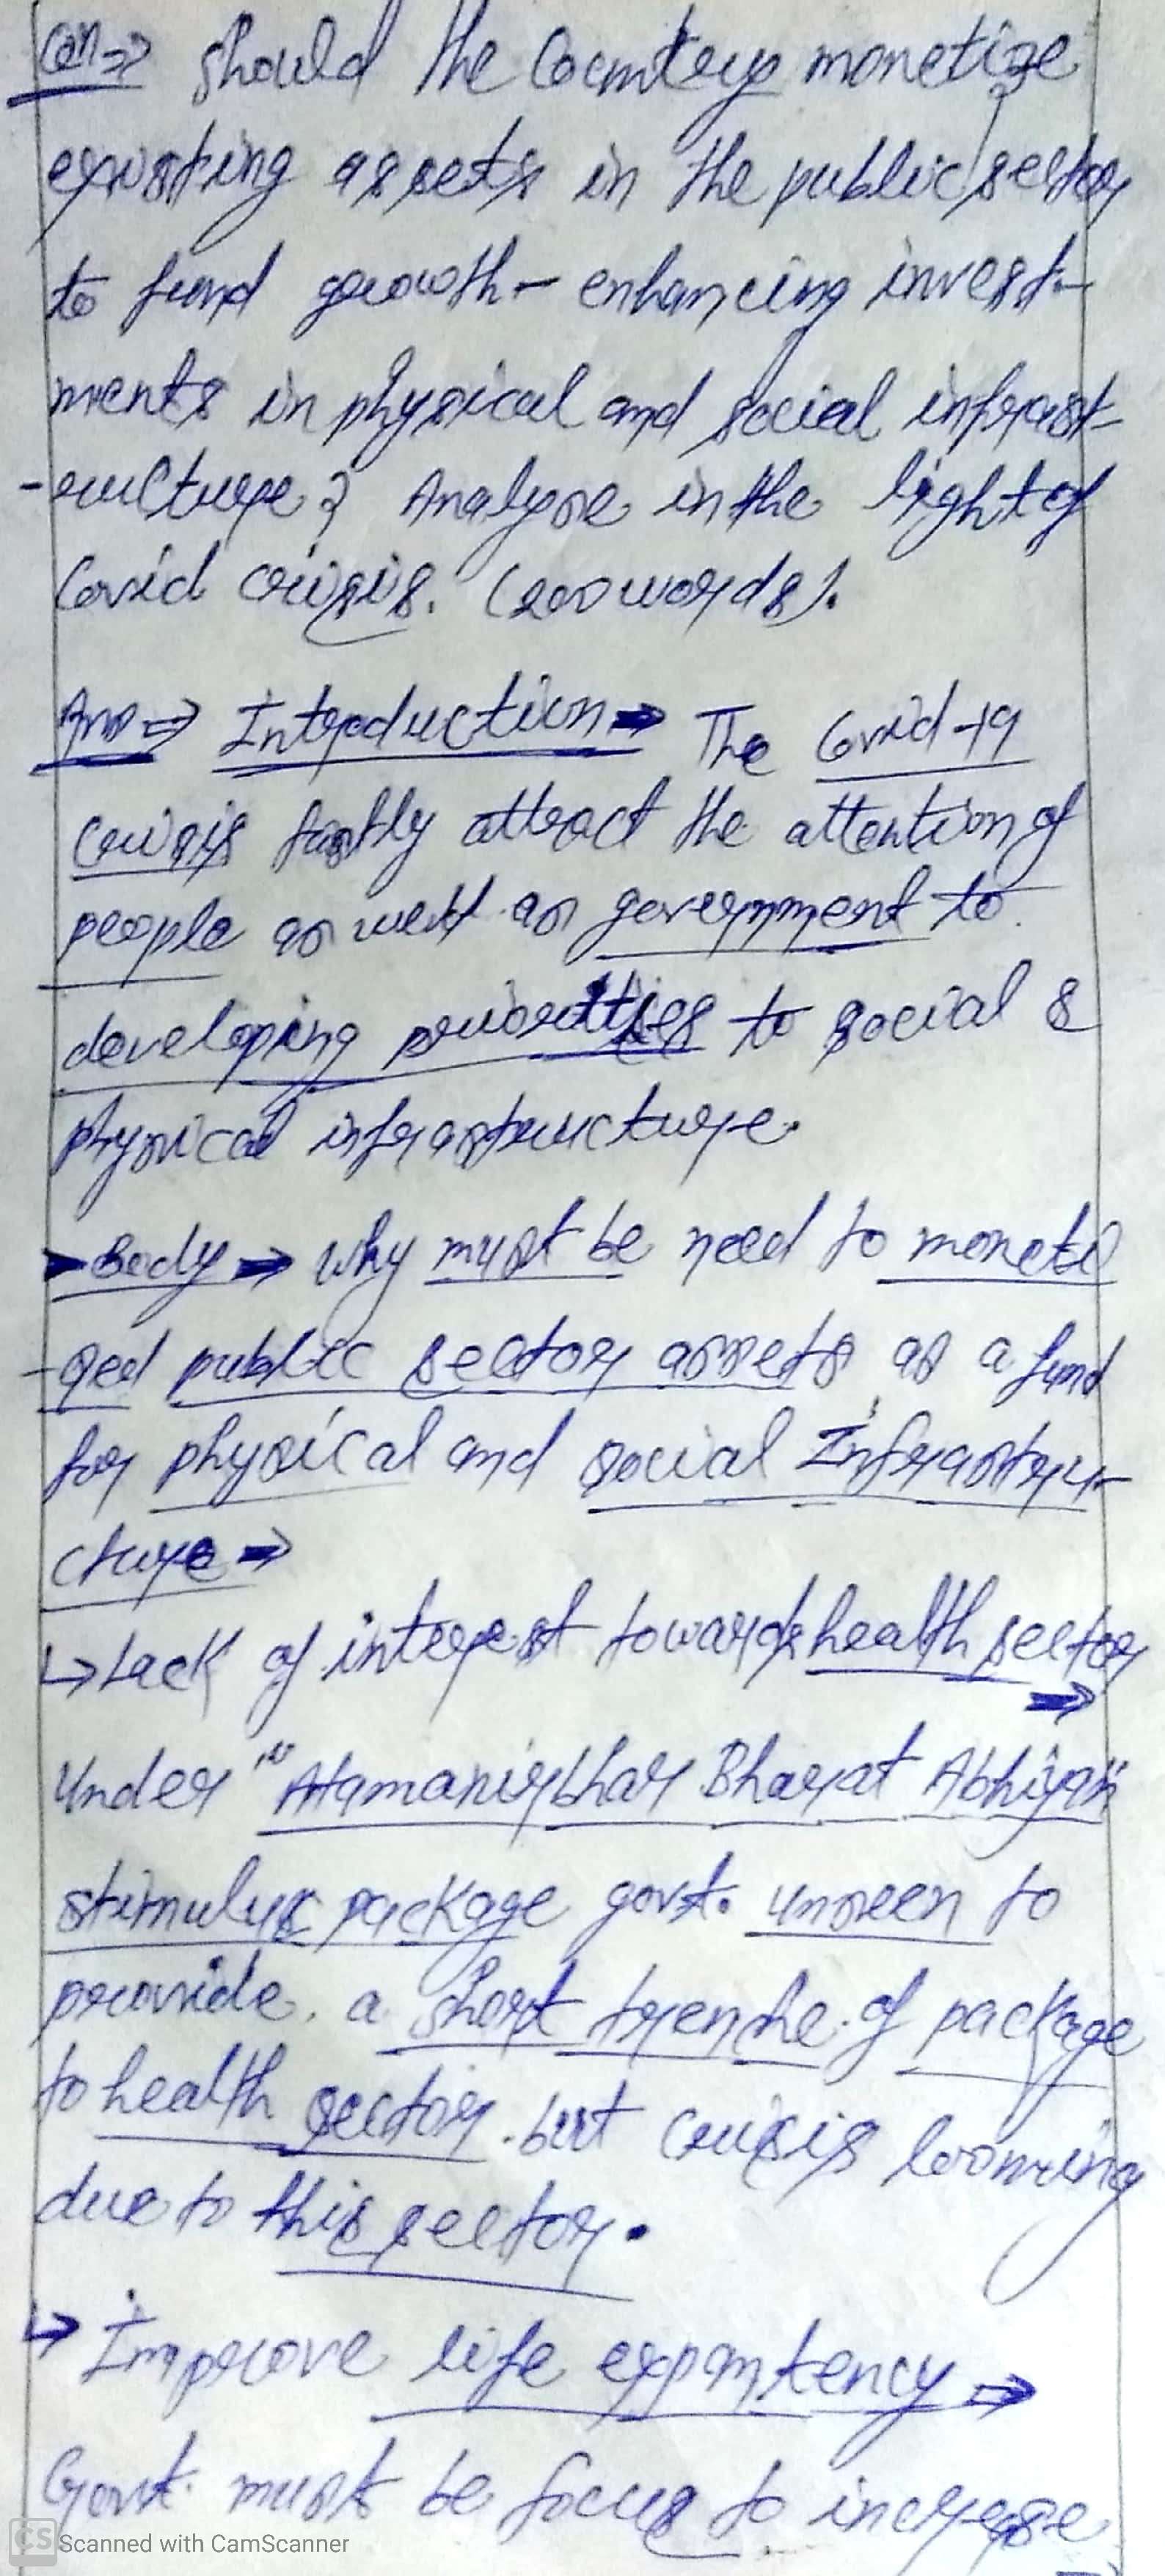 Qn ⇒ Should the Country monetize
existing assets in the public sector
to fund growth - enhancing invest-
ments in physical and social infrast-
-ructure? Analyse in the light of
Covid crisis. (200 words).
Ans ⇒ Introduction ⇒ The Covid-19
crisis fastly attract the attention of
people as well as government to
developing priorities to social &
physical infrastructure.
Body ⇒ why must be need to moneti
-zed public sector assets as a fund
for physical and social Infrastru-
cture ⇒
↳ Lack of interest towards health sector
⇒
Under "Atamanirbhar Bharat Abhiyan"
stimulus package govt. unseen to
provide a short trenche of package
to health sector. but crisis looming
due to this sector.
↳ Improve life expantency ⇒
Govt. must be focus to increase
CS Scanned with CamScanner